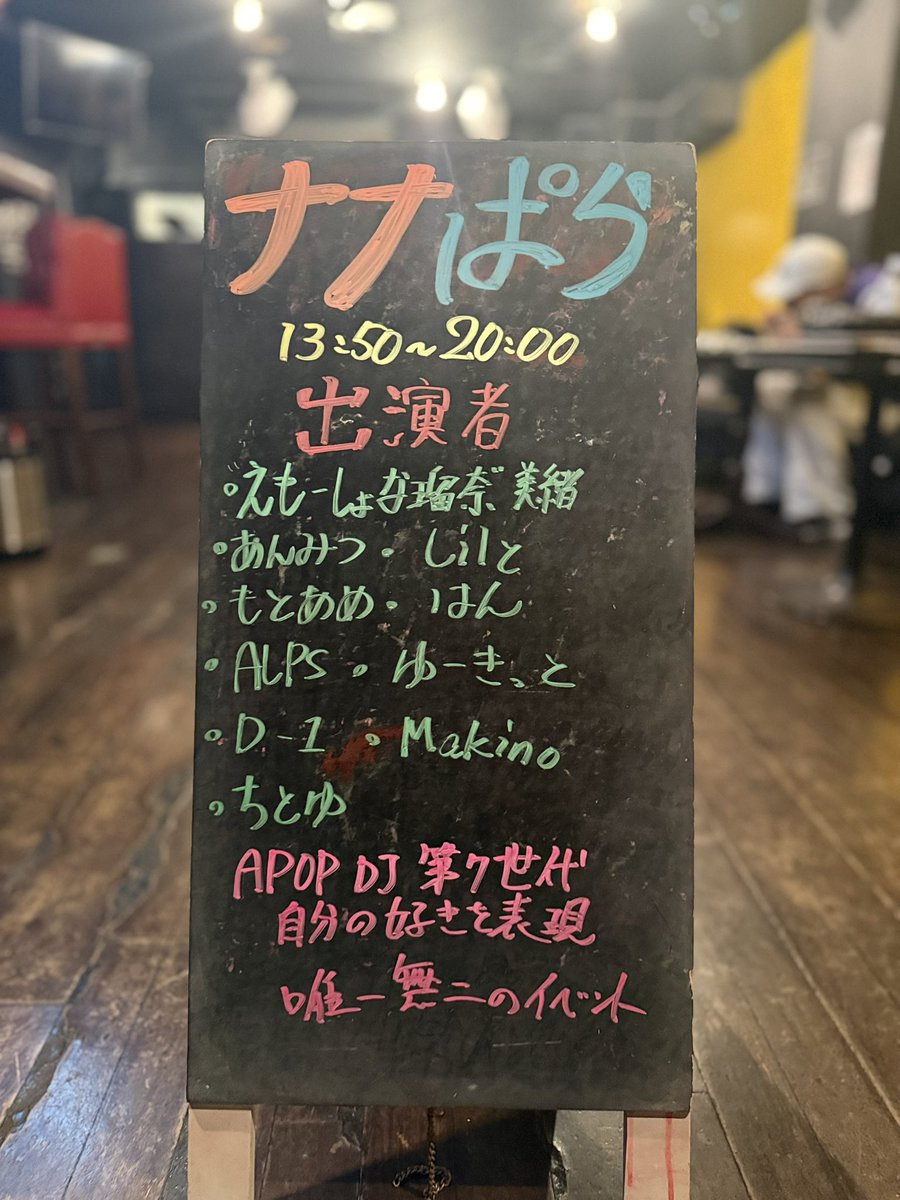 ナナぱら
13:50~20:00
出演者
・えもーしょな瑠奈 美緒
・あんみつ ・しilと
・もとあめ ・はん
・ALPS ・ゆーきっと
・D-1 ・Makino
・ちとゆ
APOP DJ 第7世代
自分の好きを表現
唯一無二のイベント